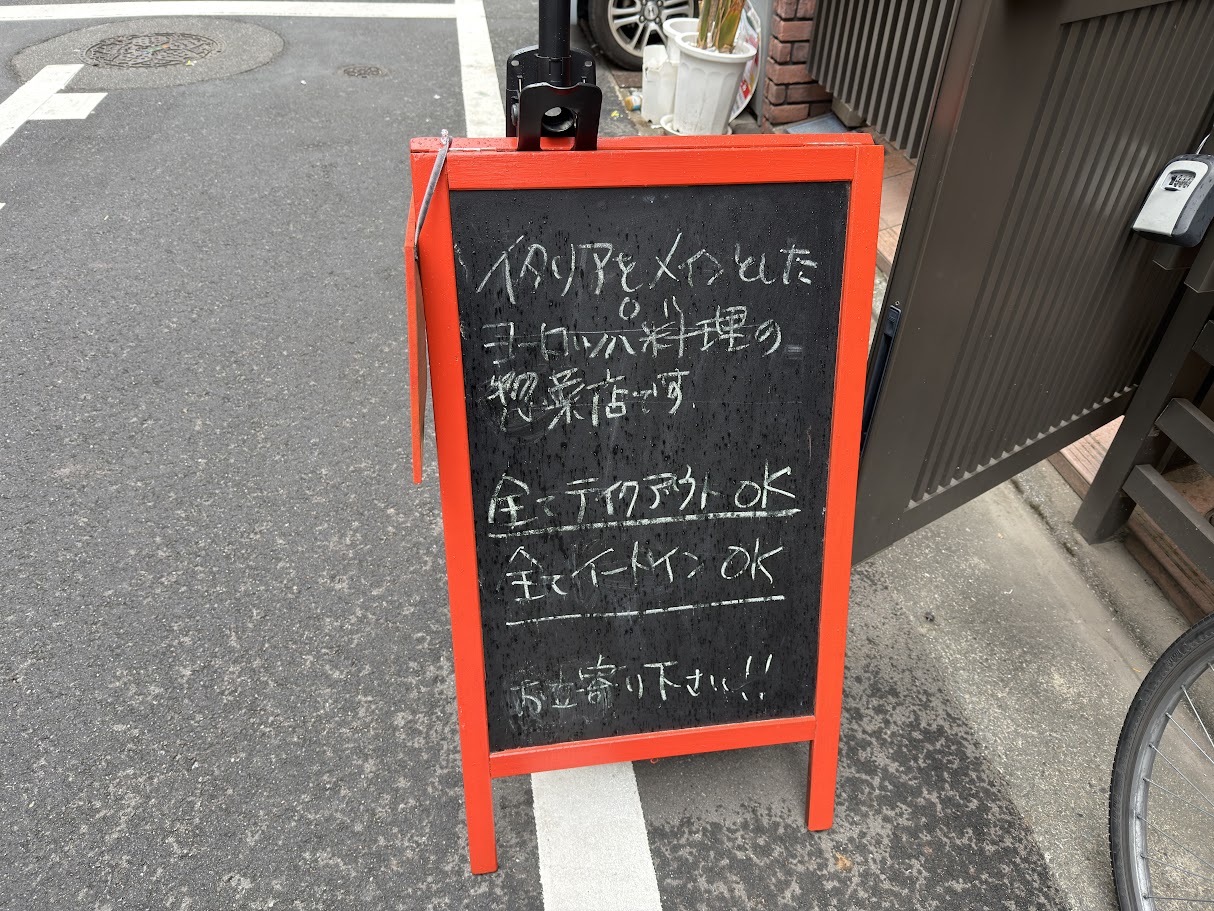 イタリアをメインとした
ヨーロッパ料理の
惣菜店です。
全てテイクアウトOK
全てイートインOK
お立寄り下さい!!